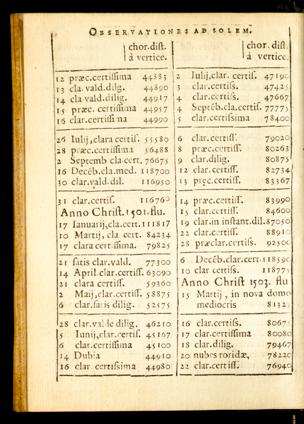 OBSERVATIONES AD SOLEM.
chor. dist. à vertice.
12 præc. certissima 44383
13 cla. vald. dilg. 44890
14 cla vald. dilig. 44917
15 præc. certissima 44957
16 clar. certissima 44990
26 Iulij, clara certiss. 55580
28 præc. certissima 56488
2 Septemb cla cert. 76675
16 Decēb. cla. med. 118700
30 clar. vald. dil. 116950
31 clar. certiss. 116760
Anno Christ. 1501. flu.
17 Ianuarij, cla. cert. 111817
10 Martij, cla. cert. 84234
17 clara certissima. 79825
21 satis clar. vald. 77300
14 April. clar. certiss. 63090
21 clara certiss. 59360
2 Maij, clar. certiss. 58875
6 clar. satis dilig. 52575
28 clar. valde dilig. 46210
5 Iunij, clar. certiss. 45167
6 clar. certissima 45100
14 Dubia 44910
16 clar. certissima 44980
chor. dist. à vertice.
2 Iulij, clar. certiss. 47190
3 clar. certiss. 47425
4 clar. certiss. 47667
4 Septēb. cla. certiss. 77775
5 clar. certissima 78400
6 clar. certiss. 79020
8 præc. certiss. 80263
9 clar. dilig. 80875
12 clar. certiss. 82734
13 præc. certiss. 83367
14 præc. certiss. 83990
15 clar. certiss. 84600
19 clar. in instant. dil. 87050
22 clar. certiss. 88910
28 præclar. certiss. 92500
6 Decēb. clar. cert. 118590
10 clar certiss. 118775
Anno Christ 1503. flu
15 Martij, in nova domo
mediocris
16 clar. certiss.
17 clar. certissima 80080
18 clar. dilig. 79467
20 nubes roridæ, 78220
22 clar. certiss. 76940